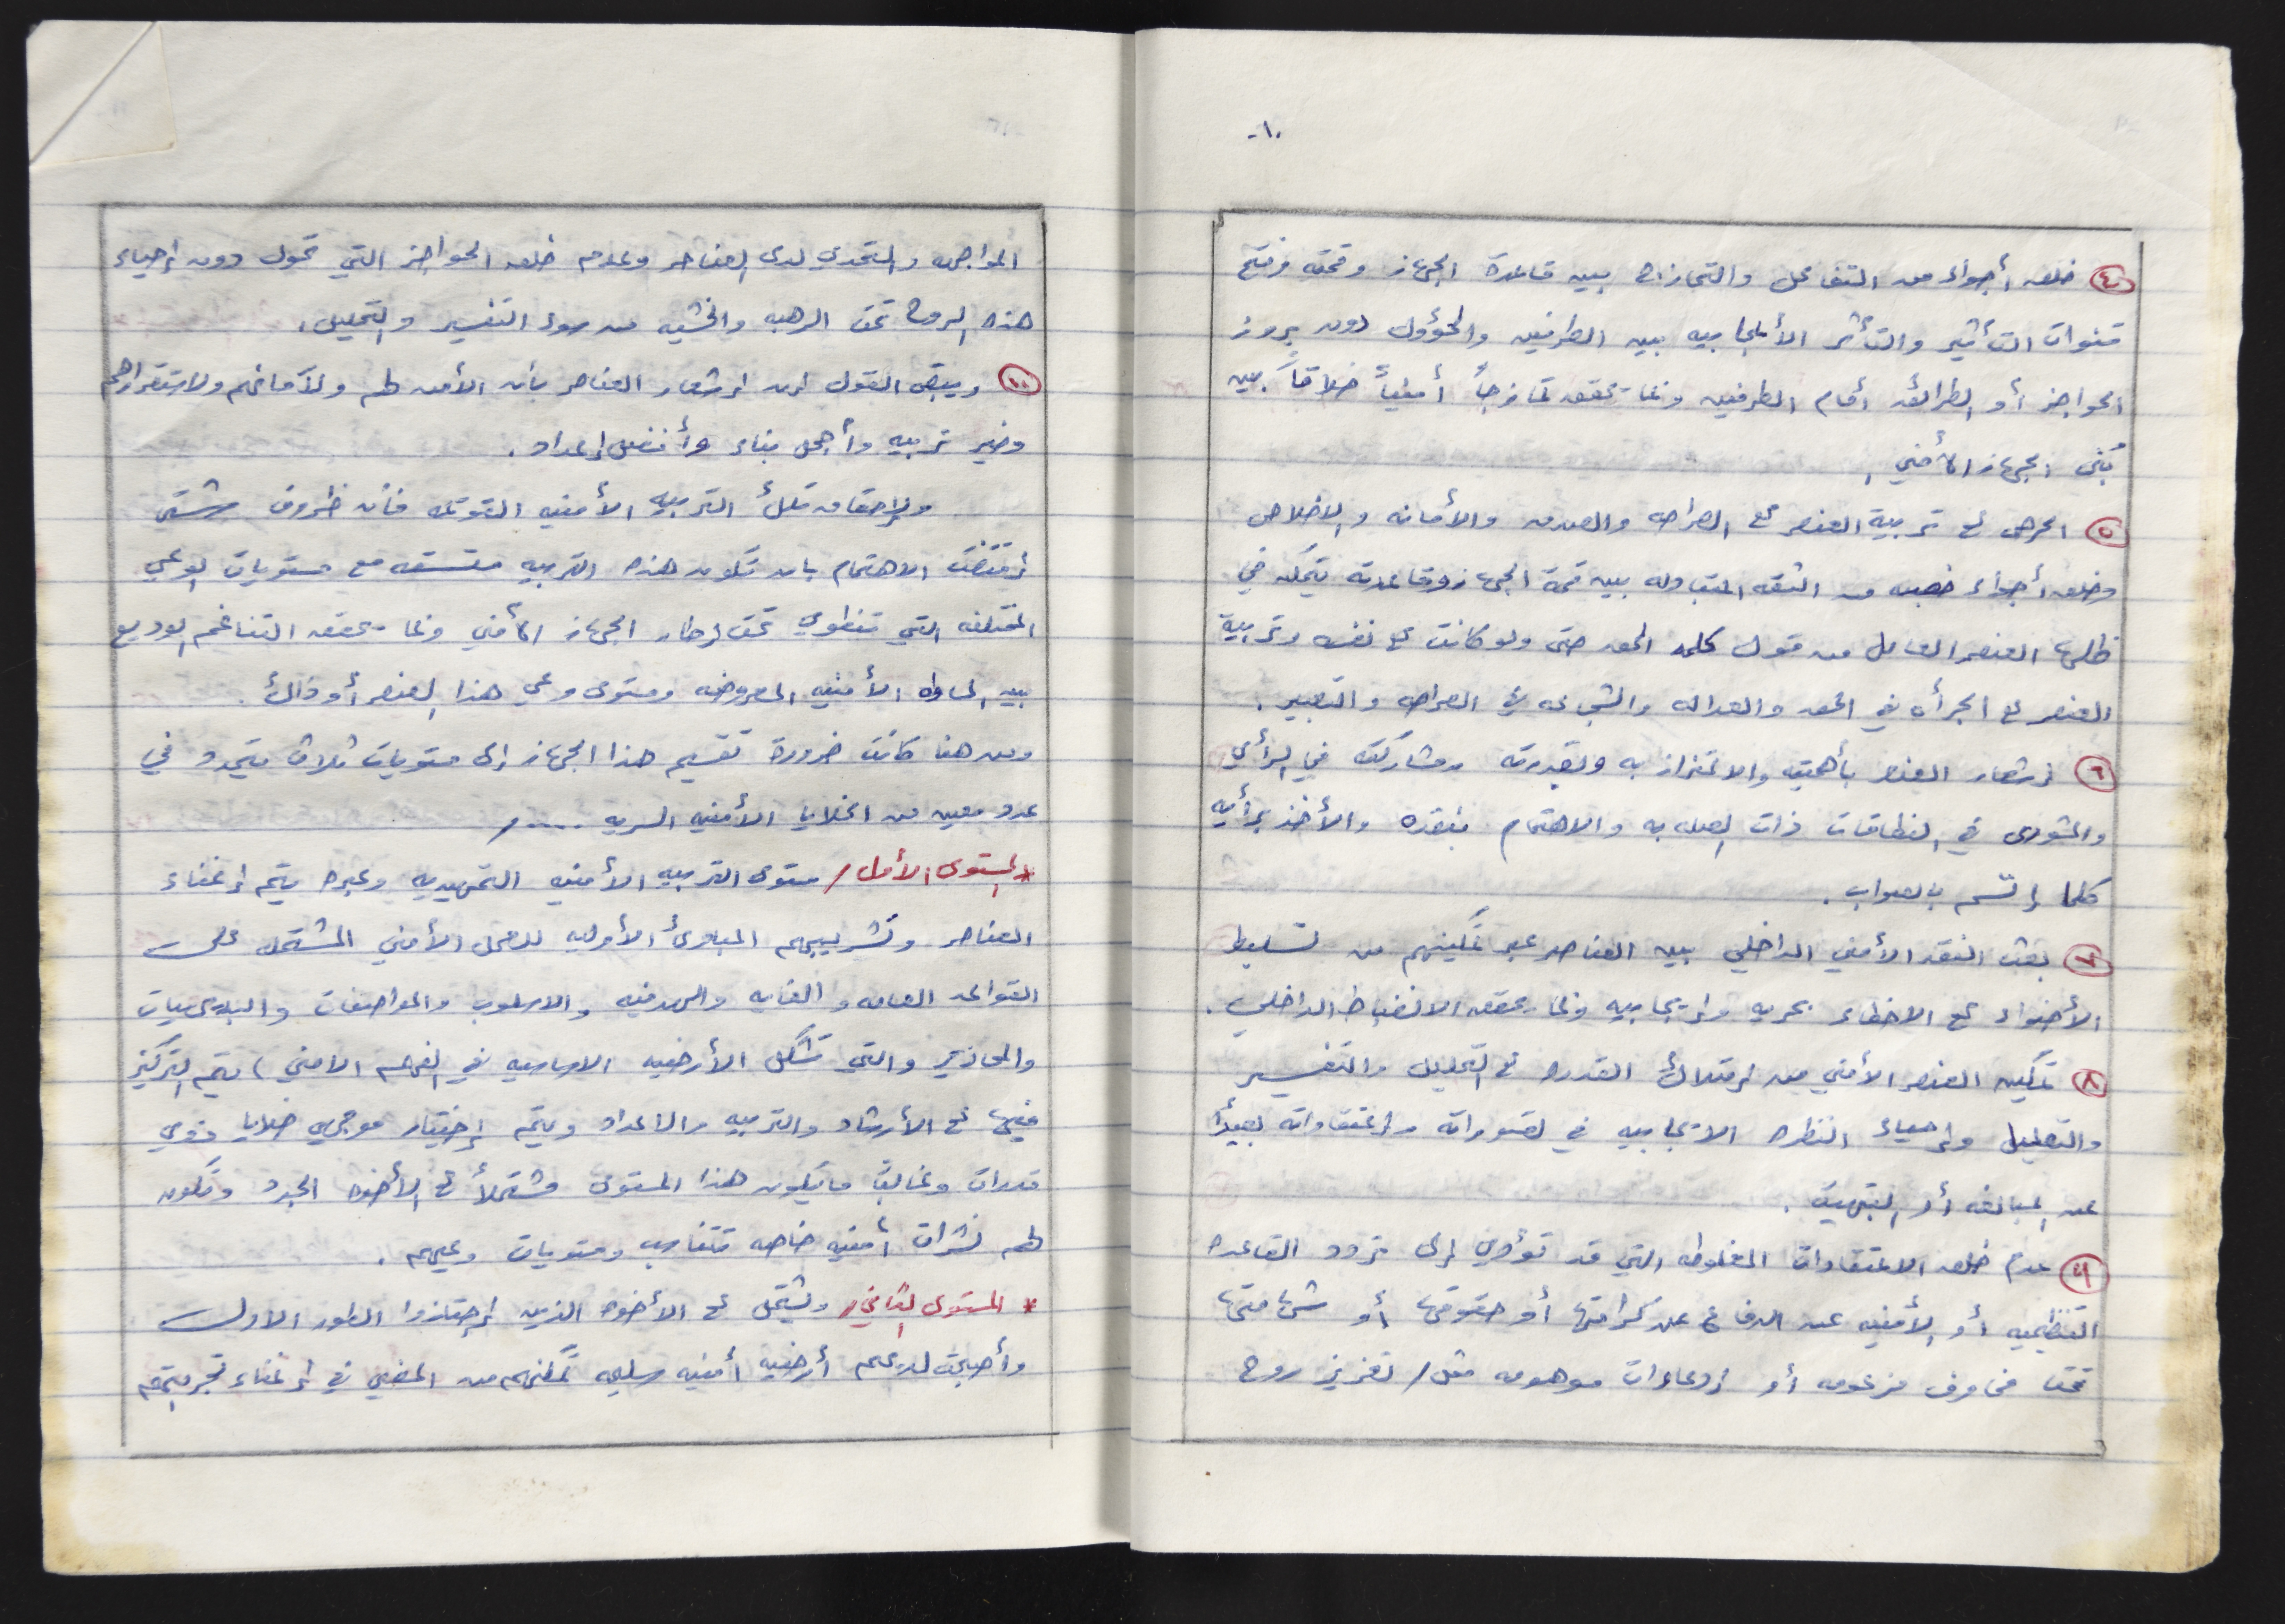 -١٠
٤ خلق أجواء من التفاعل والتمازج بين قاعدة الجهاز وقمته وفتح
قنوات التأثير والتأثر الأيجابيه بين الطرفين والحؤول دون بروز
الحواجز أو الطرائق أمام الطرفين وبما يحقق تمازجاً أمنياً خلاقاً بين
بُنى الجهاز الأمني .
٥ الحرص على تربية العنصر على الصراحه والصدق والأمانه والاخلاص
وخلق أجواء خصبه من الثقه المتبادله بين قمة الجهاز وقاعدته يتمكن في
ظلها العنصر العامل من قول كلمة الحق حتى ولو كانت على نفسه وتربية
العنصر على الجرأه في الحق والعداله والشجاعه في الصراحه والتعبير .
٦ إشعار العنصر بأهميته والاعتزاز به وبقدرته ومشاركته في الرأي
والشورى في النطاقات ذات الصله به والاهتمام بنقده والأخذ برأيه
كلما إتسم بالصواب .
٧ بعث النقد الأمني الداخلي بين العناصر عبر تمكينهم من تسليط
الأضواء على الاخطاء بحريه وإيجابيه وبما يحقق الانضباط الداخلي .
٨ تمكين العنصر الأمني من إمتلاك القدره على التحليل والتفسير
والتعليل وإحياء النظره الايجابيه في تصوراته وإعتقاداته بعيداً
عن المبالغه أو التهيئة .
٩ عدم خلق الاعتقادات المغلوطه التي قد تؤدي إلى تردد القاعده
التنظيميه أو الأمنيه عن الدفاع عن كرامتها أو حقوقها أو شهامتها
تحت مخاوف مزعومه أو إدعاءات موهومه مثل/ تعزيز روح
المواجهه والتحدي لدى العناصر وعدم خلق الحواجز التي تحول دون إحياء
هذه الروح تحت الرهبه والخشيه من سوء التفسير والتحليل .
١٠ ويبقى القول إن إشعار العناصر بأن الأمن لهم ولأمانهم ولاستقرارهم
وخير تربيه وأجمل بناء وأفضل إعداد .
ولإحقاق تلك التربيه الأمنيه القويمه فأن ظروف شتى
إقتضت الاهتمام بان تكون هذه التربيه متسقه مع مستويات الوعي
المختلفه التي تنطوي تحت إطار الجهاز الأمني وبما يحقق التناغم الوديع
بين الماده الأمنيه المعروضه ومستوى وعي هذا العنصر أو ذاك .
ومن هنا كانت ضرورة تقسيم هذا الجهاز إلى مستويات ثلاث يتحدد في
عدد معين من الخلايا الأمنيه السريه ..... /
* المستوى الأول / مستوى التربيه الأمنيه التمهيديه وعبره يتم إغناء
العناصر وتشريبهم المبادئ الأوليه للعمل الأمني المشتمله على
القواعد العامه و الغايه والهدفيه والاسلوب والمواصفات والبديهيات
والمحاذير والتي تشكل الأرضيه الاساسيه في الفهم الامني ، يتم التركيز
فيها على الأرشاد والتربيه والاعداد ويتم إختيار موجهي خلايا ذوي
قدرات وغالباً مايكون هذا المستوى مشتملاً على الأخوه الجدد وتكون
لهم نشرات أمنيه خاصه تتناسب ومستويات وعيهم .
* المستوى الثاني / ويشتمل على الأخوه الذين إجتازوا الطور الاول
وأصبحت لديهم أرضيه أمنيه سليمه تمكنهم من المضي في إغناء تجربتهم